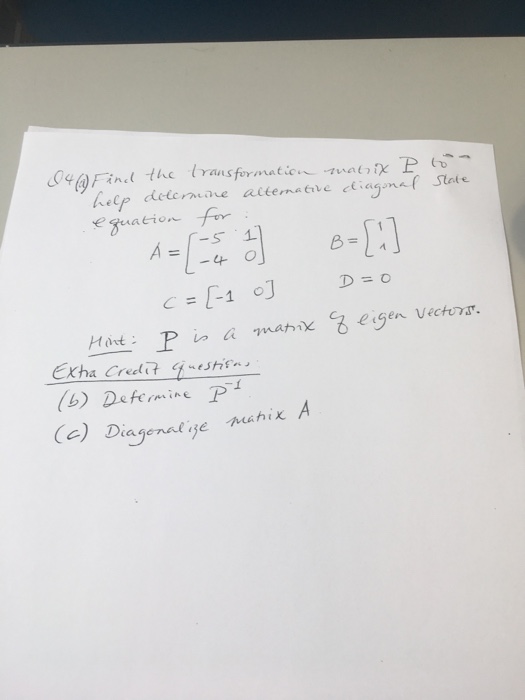 Q4(a) Find the transformation matrix P to
help determine alternative diagonal state
equation for :
A = [-5 1] B = [1]
[-4 0] [1]
C = [-1 0] D = 0
Hint : P is a matrix of eigen vectors.
Extra Credit questions
(b) Determine P^-1
(c) Diagonalize matrix A